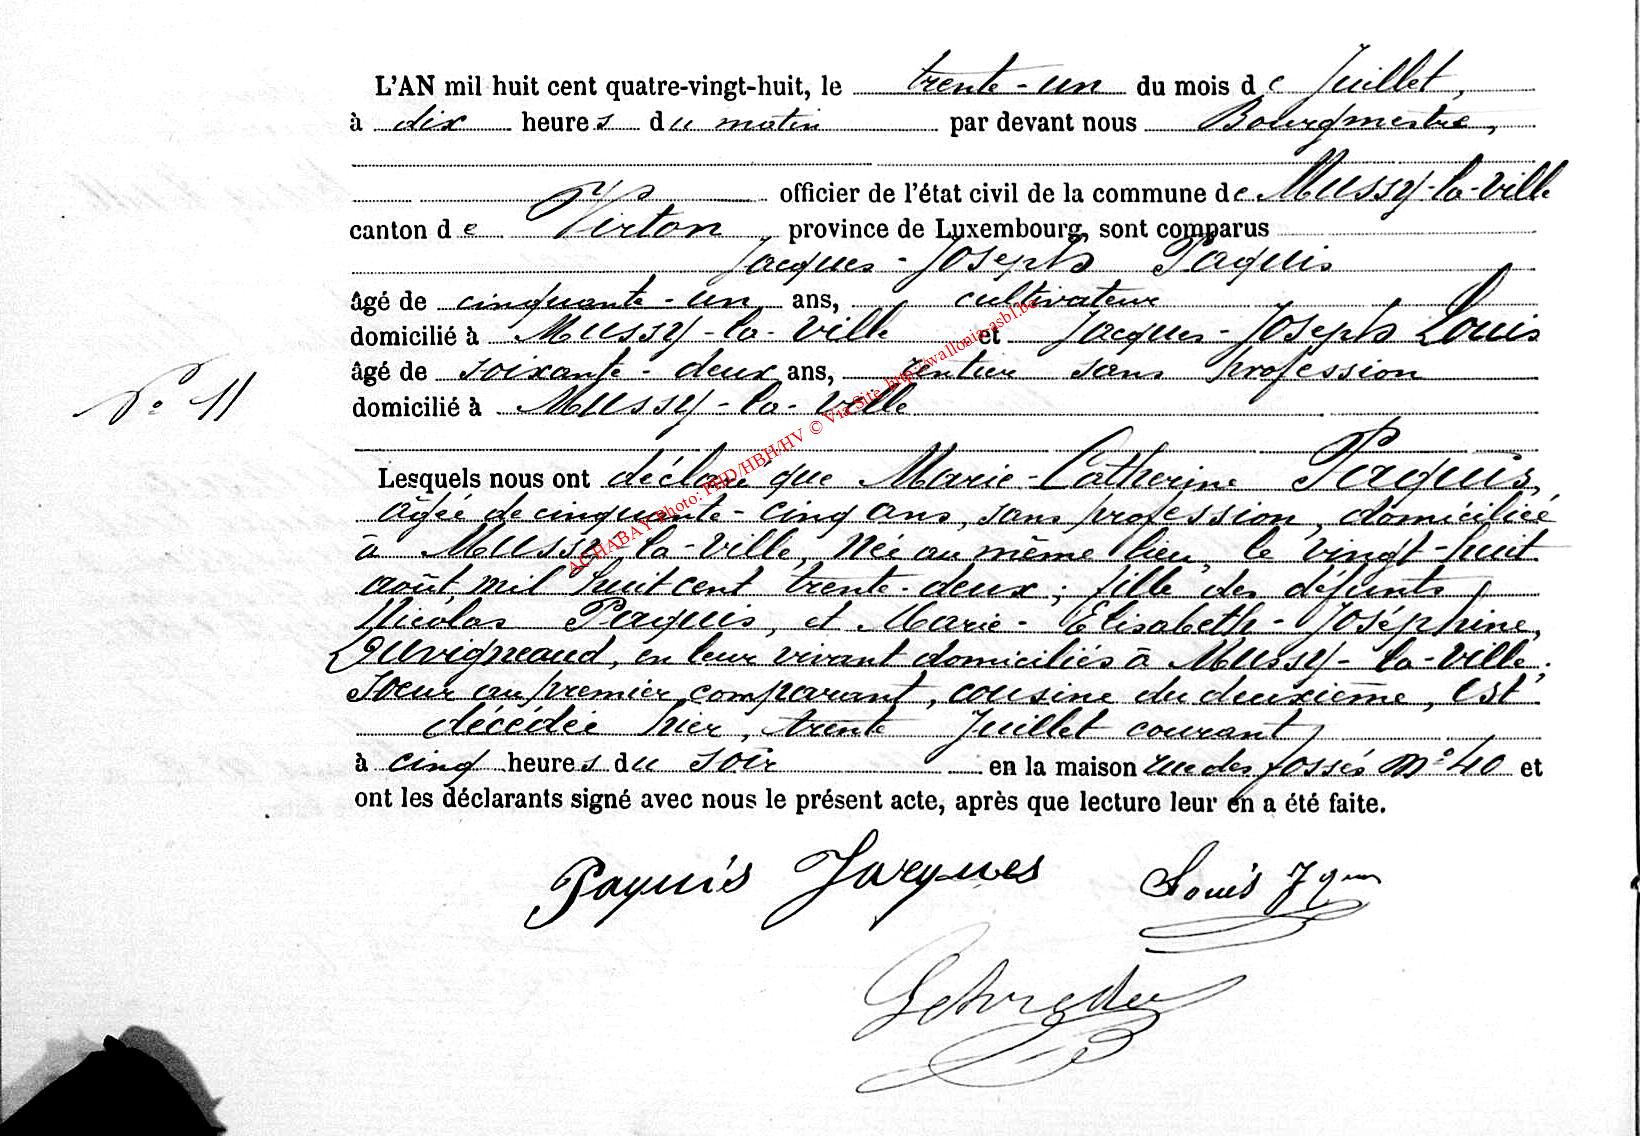 L'AN mil huit cent quatre-vingt-huit, le trente-un du mois de Juillet,
à dix heures du matin par devant nous Bourgmestre,
officier de l'état civil de la commune de Mussy-la-Ville
canton de Virton province de Luxembourg, sont comparus
Jacques-Joseph Paquis
âgé de cinquante-un ans, cultivateur
domicilié à Mussy-la-Ville et Jacques-Joseph Louis
âgé de soixante-deux ans, rentier sans profession
N° 11
domicilié à Mussy-la-Ville
Lesquels nous ont déclaré que Marie-Catherine Paquis,
âgée de cinquante-cinq ans, sans profession, domiciliée
à Mussy-la-Ville, Née au même lieu, le vingt-huit
août mil huit cent trente-deux; fille des défunts
Nicolas Paquis, et Marie-Elisabeth-Joséphine,
Duvigneaud, en leur vivant domiciliés à Mussy-la-Ville;
soeur au premier comparant, cousine du deuxième, est
décédée hier, trente Juillet courant,
à cinq heures du soir en la maison rue des fossés N° 40 et
ont les déclarants signé avec nous le présent acte, après que lecture leur en a été faite.
Paquis Jacques Louis
ACHABAY Photo: PHD/HBH/HV © Via Site http://wallonia-asbl.be